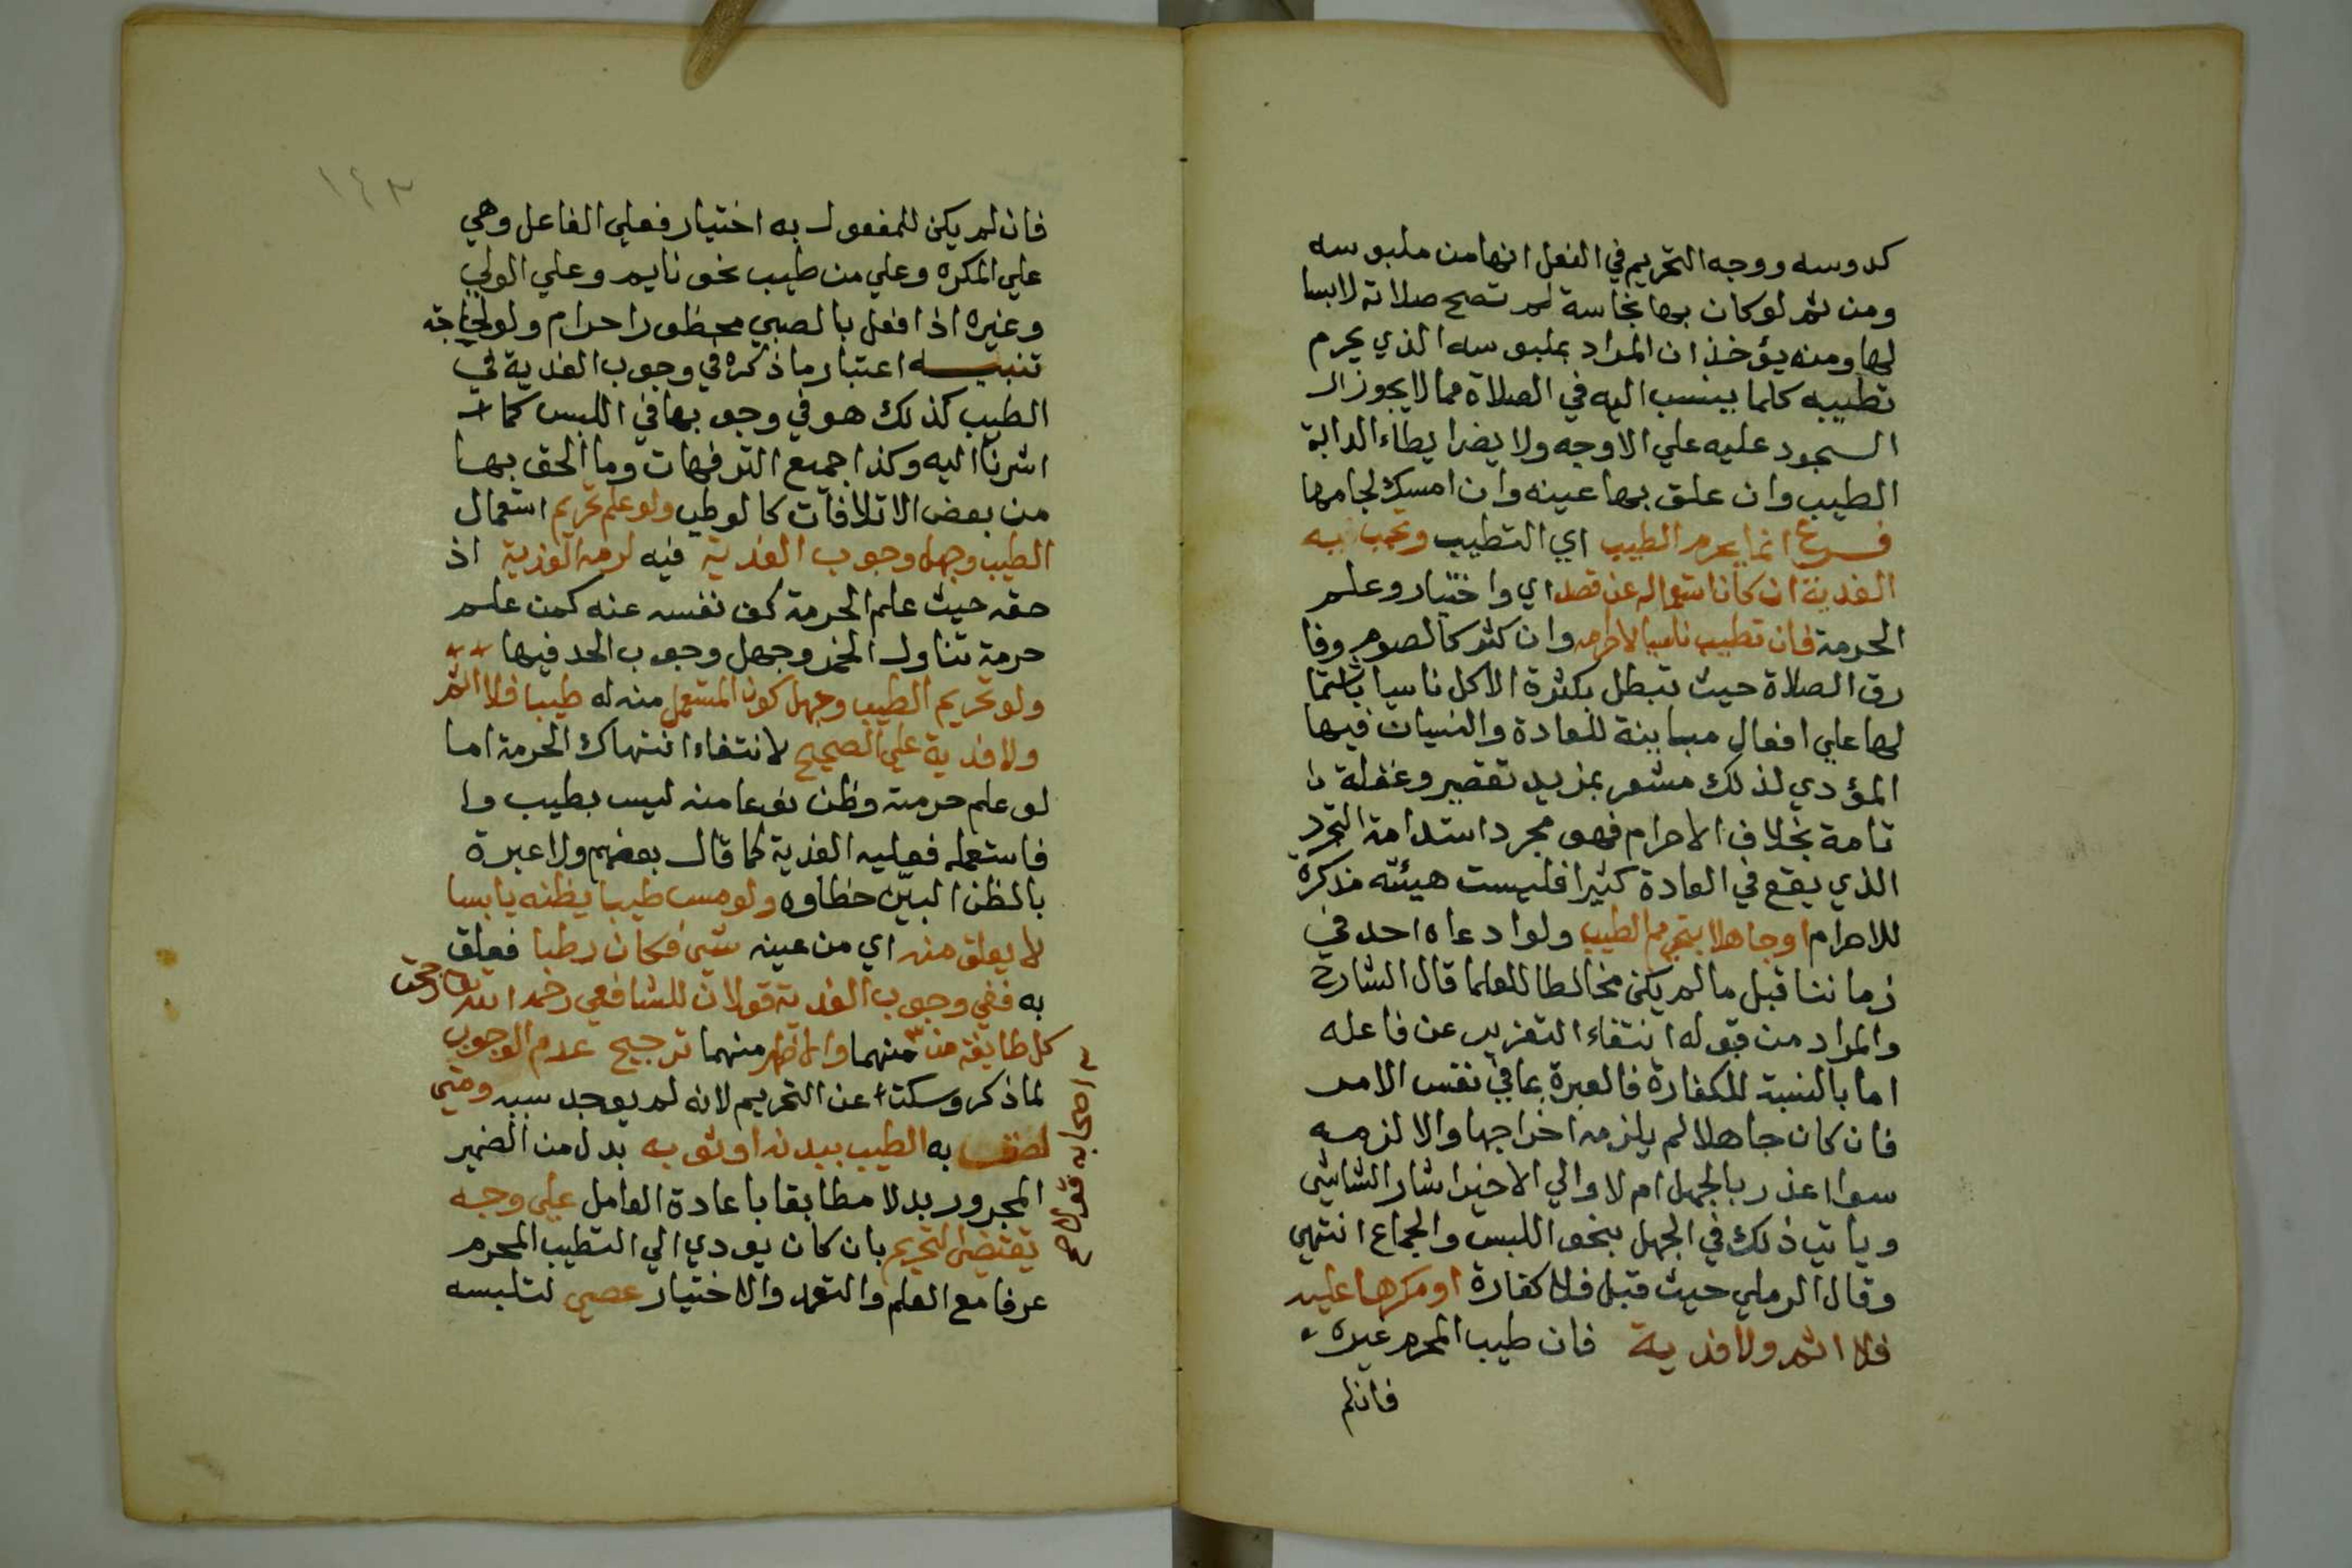 كدوسه ووجه التحريم في النعل انها من ملبوسه
ومن ثم لو كان بها نجاسة لم تصح صلاته لابسا
لها ومنه يؤخذ ان المراد بملبوسه الذي يحرم
تطييبه كلما ينسب اليه في الصلاة مما لا يجوز ال
السجود عليه علي الاوجه ولا يضر ايطاء الدابة
الطيب وان علق بها عينه وان امسك لجامها
فرع انما يحرم الطيب اي التطيب وتجب به
الفدية ان كان استعماله عن قصد اي واختيار وعلم
الحرمة فان تطيب ناسيا لاحرامه وان كثر كالصوم وفا
رق الصلاة حيث تبطل بكثرة الاكل ناسيا باشتما
لها علي افعال مباينة للعادة والنسيان فيها
المؤدي لذلك مشعر بمزيد تقصير وغفلة
تامة بخلاف الاحرام فهو مجرد استدامة التجرد
الذي يقع في العادة كثيرا فليست هيئته مذكرة
للاحرام او جاهلا بتحريم الطيب ولو ادعاه احد في
زماننا قبل ما لم يكن مخالطا للعلما قال الشارح
والمراد من قبوله انتفاء التعزير عن فاعله
اما بالنسبة للكفارة فالعبرة بما في نفس الامر
فان كان جاهلا لم يلزمه اخراجها والا لزمه
سوا اعذر بالجهل ام لا والي الاخير اشار الشاشي
وياتي ذلك في الجهل بنحو اللبس والجماع انتهي
وقال الرملي حيث قبل فلا كفارة او مكرها عليه
فلا اثم ولا فدية فان طيب المحرم غيره
فان لم
١٤٣
فان لم يكن للمفعول به اختيار فعلي الفاعل وهي
علي المكره وعلي من طيب نحو نايم وعلي الولي
وغيره اذا فعل بالصبي محظور احرام ولو لحاجته
تنبيه اعتبار ما ذكره في وجوب الفدية في
الطيب كذلك هو في وجوبها في اللبس كما
اشرنا اليه وكذا جميع الترفهات وما الحق بها
من بعض الاتلافات كالوطي ولو علم تحريم استعمال
الطيب وجهل وجوب الفدية فيه لزمه الفدية اذ
حقه حيث علم الحرمة كف نفسه عنه كمن علم
حرمة تناول الخمر وجهل وجوب الحد فيها
ولو تحريم الطيب وجهل كون المستعمل منه له طيبا فلا اثم
ولا فدية علي الصحيح لانتفاء انتهاك الحرمة اما
لو علم حرمته وظن نوعا منه ليس بطيب وا
فاستعمله فعليه الفدية كما قال بعضهم ولا عبرة
بالظن البين خطاوه ولو مس طيبا يظنه يابسا
لا يعلق منه اي من عينه شيء فكان رطبا فعلق
به ففي وجوب الفدية قولان للشافعي رحمه الله رجح
كل طايفة من منهما والاظهر منهما ترجيح عدم الوجوب
لما ذكر وسكتا عن التحريم لانه لم يوجد سببه ومتي
لصق به الطيب ببدنه او ثوبه بدل من الضمير
المجرور بدلا مطابقا باعادة العامل علي وجه
يقتضي التحريم بان كان يودي الي التطيب المحرم
عرفا مع العلم والتعمد والاختيار عصي لتلبسه
اصحابه قولا صح